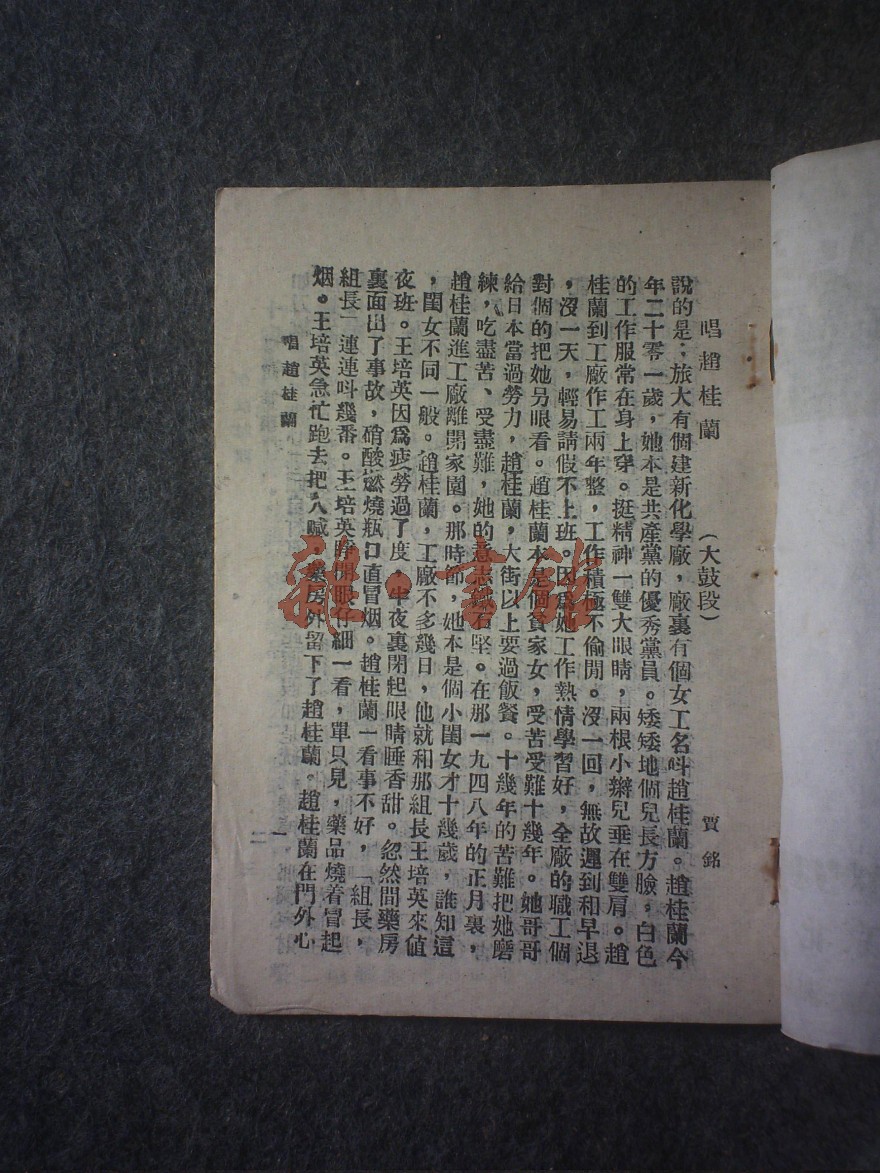 唱趙桂蘭　（大鼓段）　賈銘
說的是：旅大有個建新化學廠，廠裏有個女工名叫趙桂蘭。趙桂蘭今
年二十零一歲，她本是共產黨的優秀黨員。矮矮地個兒長方臉，白色
的工作服常在身上穿。挺精神一雙大眼睛，兩根小辮兒垂在雙肩。趙
桂蘭到工廠作工兩年整，工作積極不偷閒。沒一回，無故遲到和早退
，沒一天，輕易請假不上班。因爲她工作熱情學習好，全廠的職工個
對個的把她另眼看。趙桂蘭本是個貧家女，受苦受難十幾年。她哥哥
給日本當過勞力，趙桂蘭，大街以上要過飯餐。十幾年的苦難把她磨
練，吃盡苦、受盡難，她的意志鐵石堅。在那一九四八年的正月裏，
趙桂蘭進工廠離開家園。那時節，她本是個小閨女才十幾歲，誰知這
，閨女不同一般。趙桂蘭，工廠不多幾日，他就和那組長王培英來值
夜班。王培英因爲疲勞過了度，半夜裏閉起眼睛睡香甜。忽然間藥房
裏面出了事故，硝酸燃燒瓶口直冒烟。趙桂蘭一看事不好，「組長，
組長」連連叫幾番。王培英睜開眼仔細一看，單只見，藥品燒着冒起
烟。王培英急忙跑去把人喊，藥房外留下了趙桂蘭。趙桂蘭在門外心
唱趙桂蘭　一
雜·書館